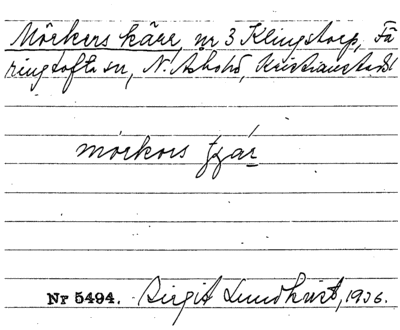 Mörkers kärr, nr 3 Klingstorp, Fä
ringtofta sn, N. Åsbohd, Kristianstads l
mórkors tjǽr
Nr 5494. Birgit Lundkvist, 1936.